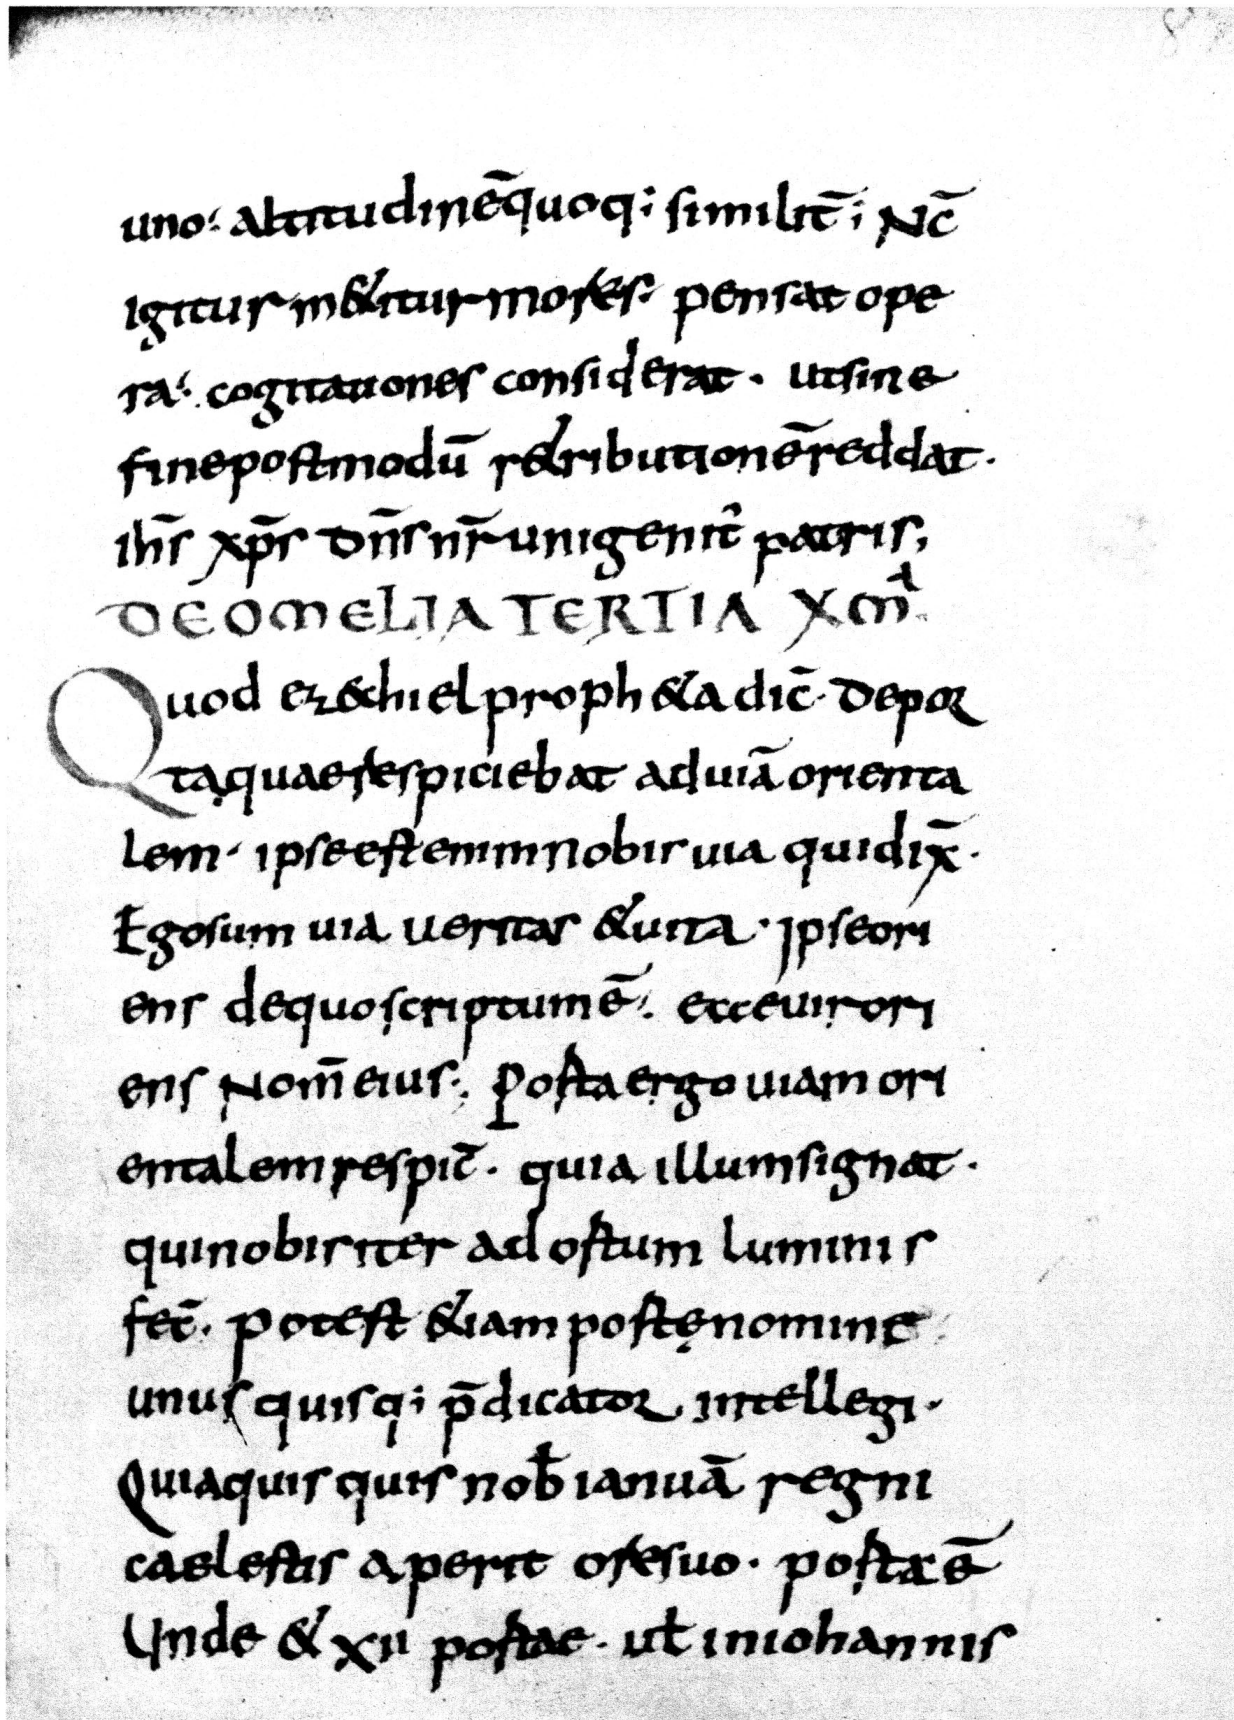 uno: altitudinē quoq; similit̄; Nc̄
igitur m&itur mores. pensat ope
ra. cogitationes considerat. ut sine
fine postmodū r&ributionē reddat.
ih̄s xp̄s dn̄s nr̄ unigenit᾽ patris;
DE OMELIA TERTIA XMA
Quod ez&chiel proph&a dic̄. De por
ta quae respiciebat ad uiā orienta
lem. ipse est enim nobis uia qui dix̄.
Ego sum uia ueritas & uita. Ipse ori
ens de quo scriptum ē. ecce uir ori
ens Nom̄ eius; Porta ergo uiam ori
entalem respic̄. quia illum signat.
qui nobis iter ad ortum luminis
fec̄. potest &iam portę nomine
unusquisq; p̄dicator intellegi.
Quia quisquis nob̄ ianuā regni
caelestis aperit ore suo. porta ē
Unde & xii portae. ut̄ in iohannis